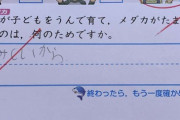 が子どもをうんで育て，メダカがたま
のは，何のためですか。
さみしいから
終わったら，もう一度確か